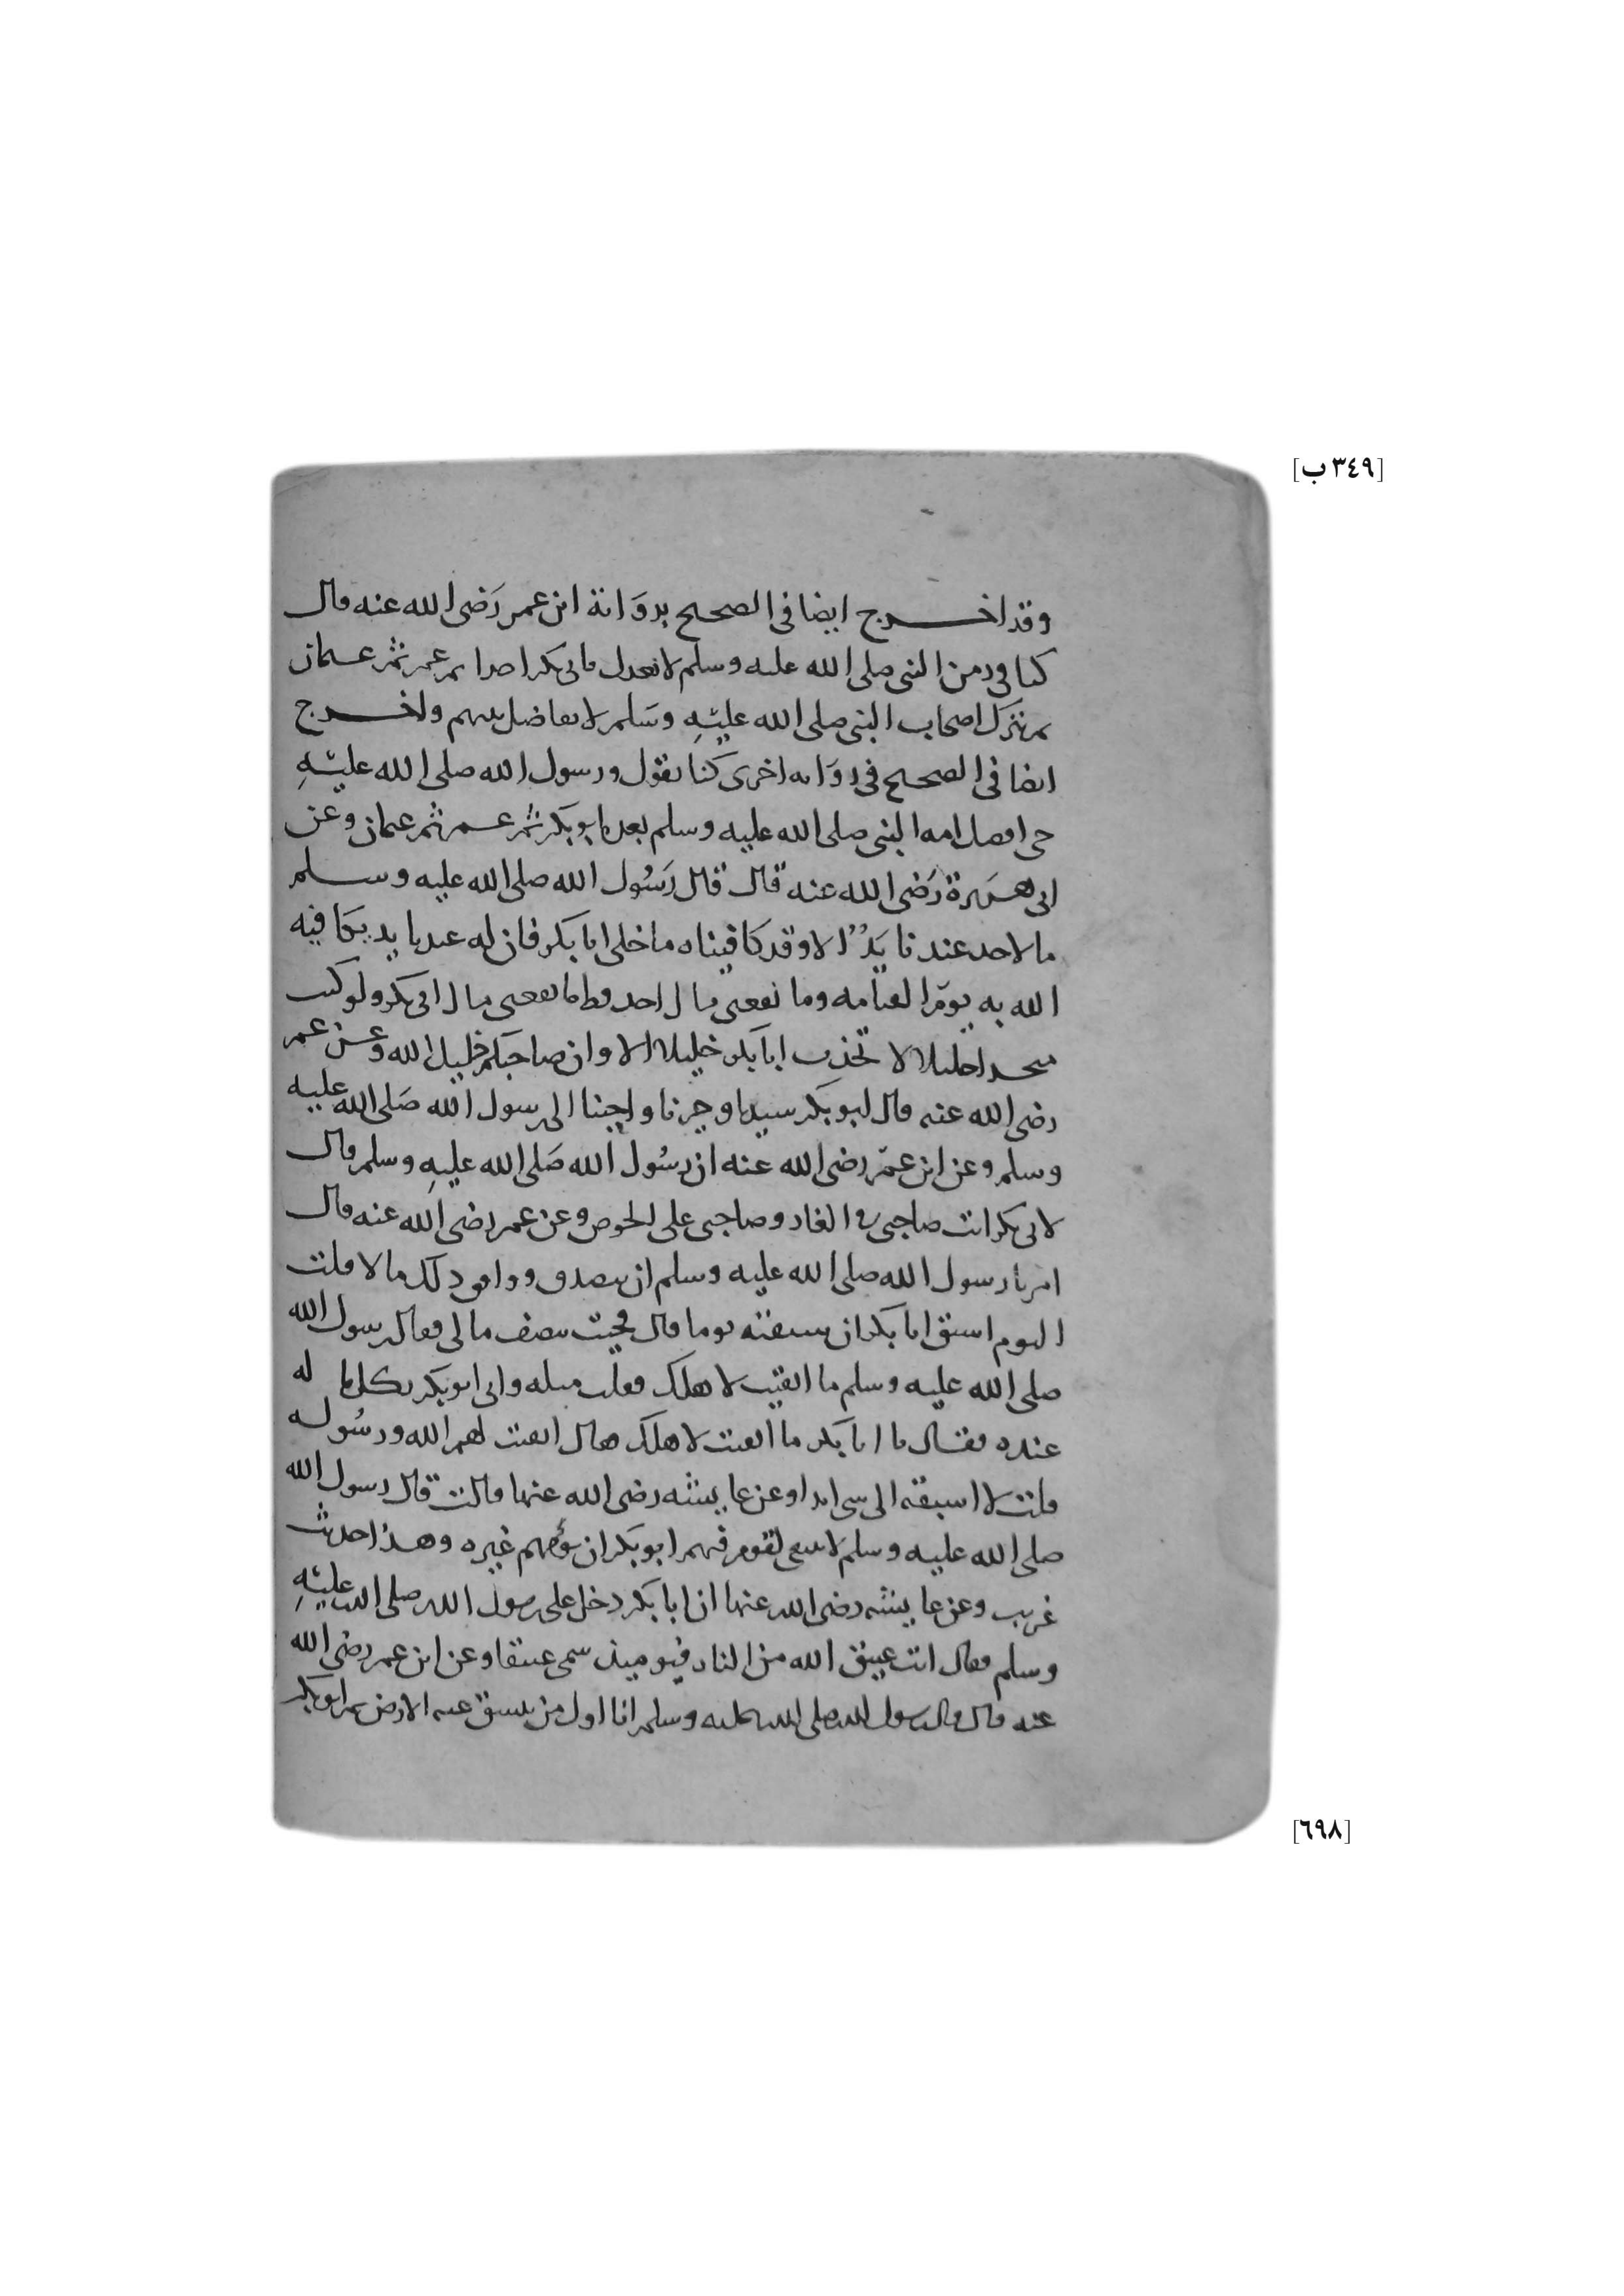 [٣٤٩ ب]
وقد اخرج ايضا في الصحيح بروَاية ابن عمر رَضى الله عنه قال
كنا في زمن النبى صلى الله عليه وسلم لا نعدل بابى بكر احدا ثم عمر ثم عثمان
ثم نترك اصحاب النبى صلى الله عليهِ وسَلم لا نفاضل بينهم واخرج
ايضا في الصحيح في روَايه اخرى كنا نقول ورسول الله صلى الله عليهِ
حى افضل امه النبى صلى الله عليه وسلم بعده ابو بكر ثم عمر ثم عثمان وعن
ابى هريرة رَضى الله عنه قال قال رَسُول الله صلى الله عليه وسلم
ما لاحد عندنا يَدٌ الا وقد كافيناه ما خلى ابا بكر فان له عندنا يد يكافيه
الله به يومَ القيامه وما نفعنى مال احد قط ما نفعنى مال ابى بكر ولو كنت
متخدا خليلا لاتخذت ابا بكر خليلا الا وان صاحبكم خليل الله وعن عمر
رضى الله عنه قال ابو بكر سيدنا وخيرنا واحبنا الى رسول الله صَلى الله عليه
وسلم وعن ابن عمَر رضى الله عنه ان رسُول الله صَلى الله عليهِ وسلم قال
لابى بكر انت صاحبى في الغار وصاحبى على الحوض وعن عمر رضى الله عنه قال
امرنا رسول الله صلى الله عليه وسلم ان نتصدق ووافق ذلك مالا قلت
اليوم اسبق ابا بكر ان سبقته يوما قال فجيت بنصف مالى فقال رسول الله
صلى الله عليه وسلم ما ابقيت لاهلك فقلت مثله واتى ابو بكر بكل ما له
عنده فقال يا ابا بكر ما ابقيت لاهلك فقال ابقيت لهم الله ورسُوله
قلت لا اسبقه الى شى ابدا وعن عايشه رضى الله عنها قالت قال رسول الله
صلى الله عليه وسلم لا ينبغى لقوم فيهم ابو بكر ان يؤمهم غيره وهذا حديث
غريب وعن عايشه رضى الله عنها ان ابا بكر دخل على رسول الله صلى الله عليهِ
وسلم فقال انت عتيق الله من النار فيوميذ سمى عتيقا وعن ابن عمر رضى الله
عنه قال قال رسول الله صلى الله عليه وسلم انا اول من تنشق عنه الارض ثم ابو بكر
[٦٩٨]